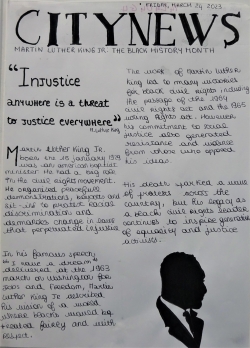 FRIDAY, MARCH 24, 2023
CITYNEWS
MARTIN LUTHER KING JR. THE BLACK HISTORY MONTH
"Injustice
anywhere is a threat
to justice everywhere"
M. Luther King
Martin Luther King Jr.
born the 15 january 1929
was an american baptist
minister. He had a key role
in the civil rights movement.
He organized peaceful
demonstrations, boycotts and
sit-ins to protest racial
discrimination and
demanded change in laws
that perpetuated injustice
In his famous speech
"I have a dream"
delivered at the 1963
march on Washington for
Jobs and Freedom, Martin
Luther King Jr. described
his vision of a world
where blacks would be
treated fairly and with
respect.
The work of Martin Luther
King led to many victories
for black civil rights including
the passage of the 1964
civil rights act and the 1965
voting rights act. However
his commitment to social
justice also generated
resistance and violence
from those who opposed
his ideas.
His death sparked a wave
of protests across the
country, but his legacy as
a black civil rights leader
continues to inspire generations
of equality and justice
activists.